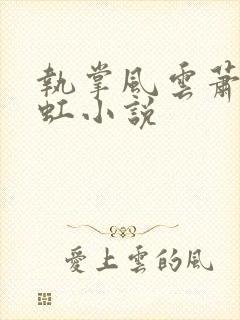 執掌風雲蕭
虹小說
愛上雲的風